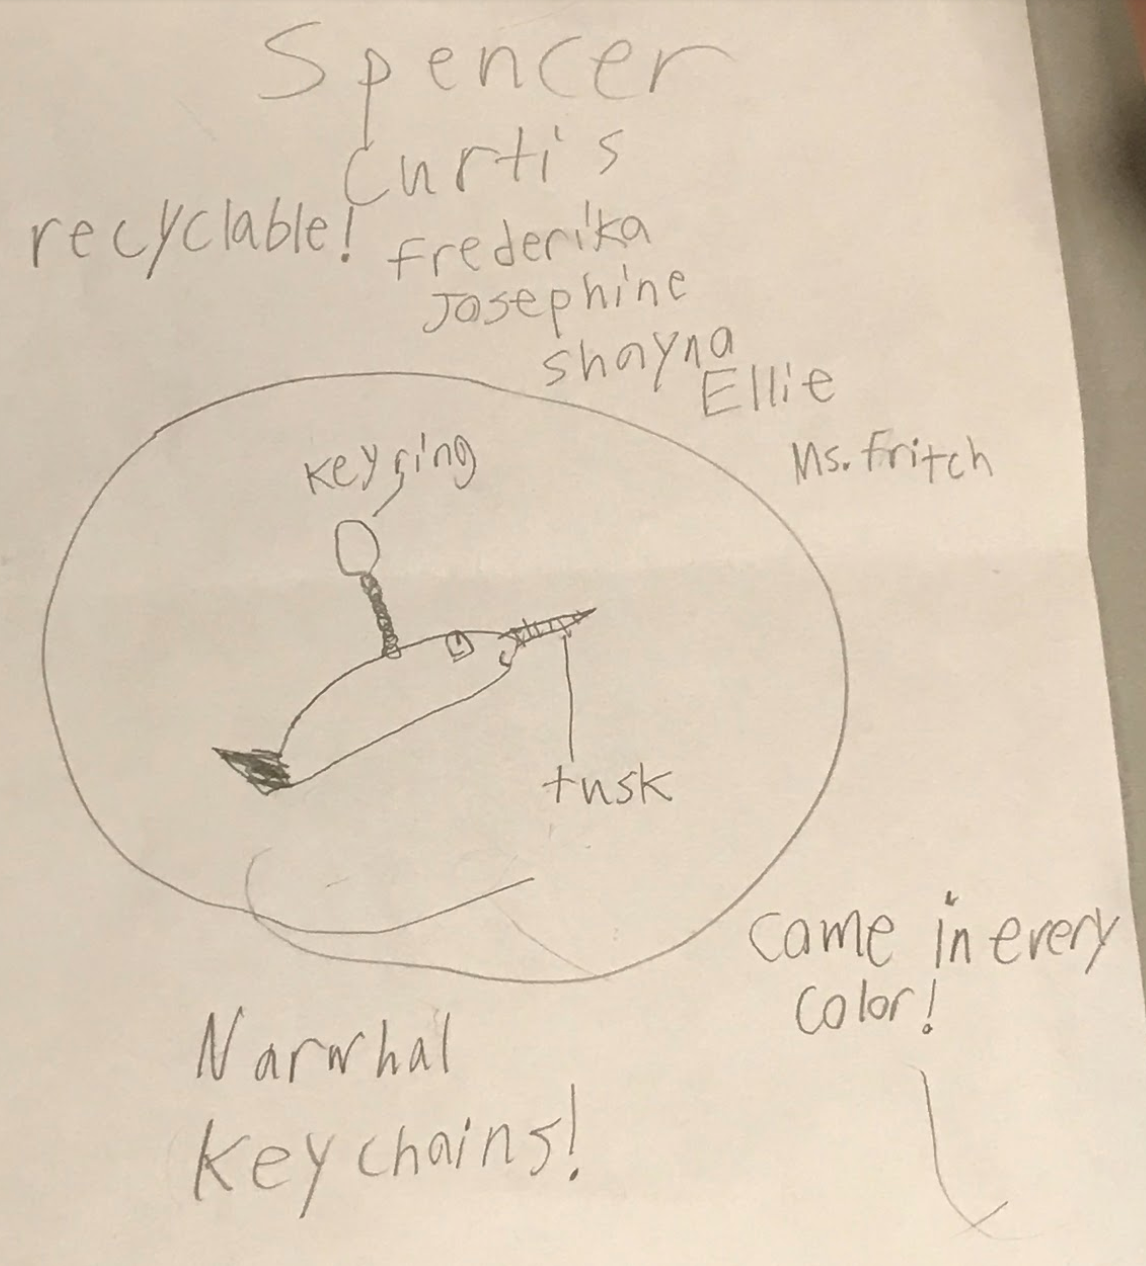 Spencer
Curtis
recyclable!
Frederika
Josephine
Shayna
Ellie
Ms. Fritch
key ring
tusk
Came in every
color!
Narwhal
Keychains!